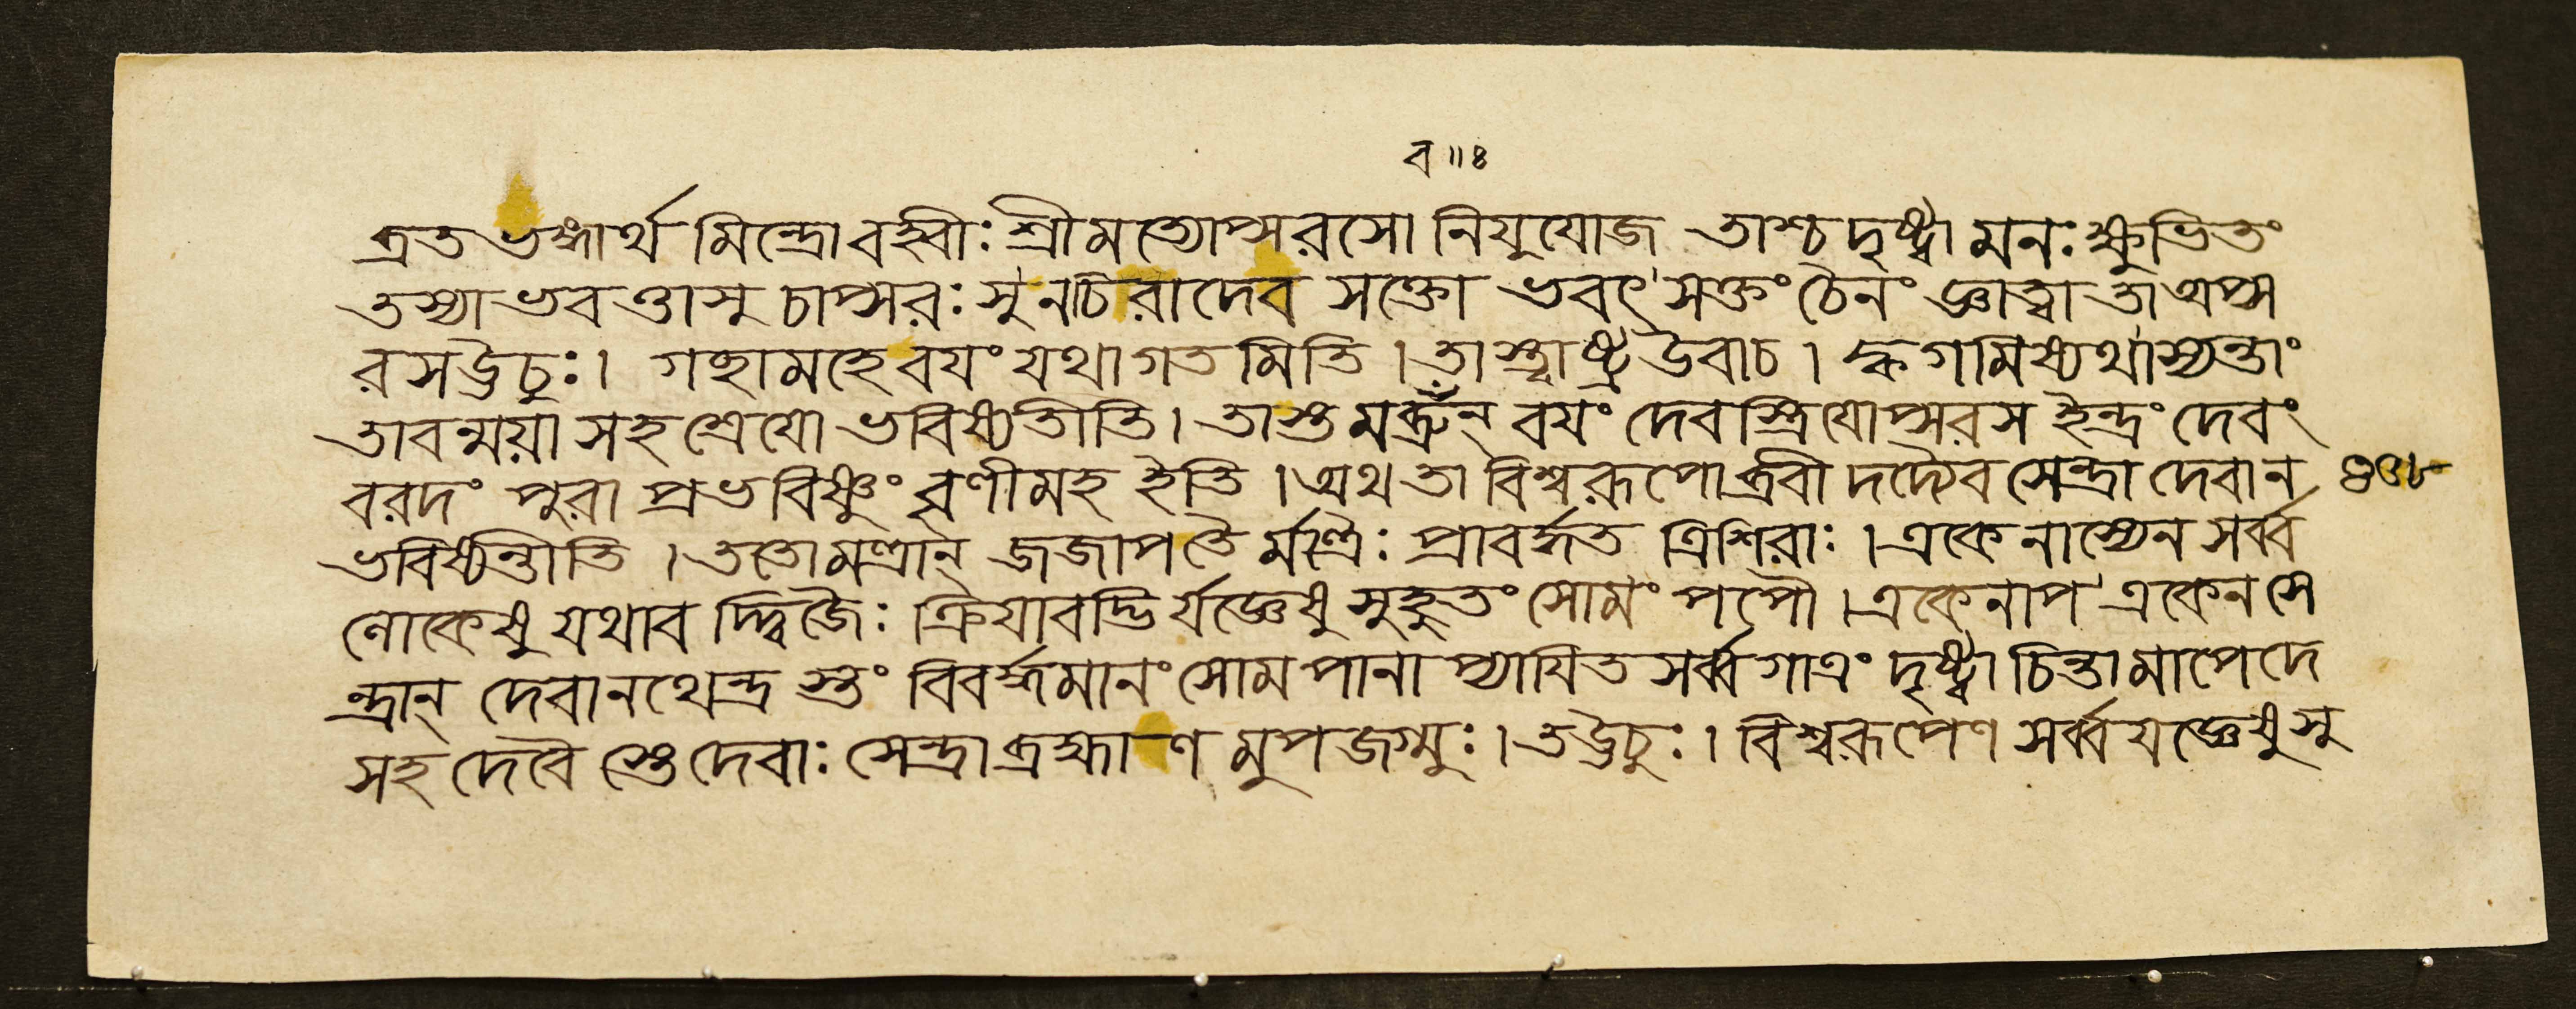 ব॥ঃ
ব্রতভঙ্গার্থমিন্দ্রো বহ্বীঃ শ্রীমত্যোপ্সরসো নিযুযোজ তাশ্চ দৃষ্ট্বা মনঃ ক্ষুভিতং
তস্যাভবত্তাসু চাপ্সরঃসু নচিরাদেব সক্তো ভবৎ সক্তং চৈনং জ্ঞাত্বা তা অপ্স
রস ঊচুঃ। গচ্ছামহে বযং যথাগতমিতি। তাস্ত্বাষ্ট্র উবাচ। ক্ব গমিষ্যথাস্যন্তাং
তাবন্ময়া সহ শ্রেযো ভবিষ্যতীতি। তাস্তমব্রুবন্ বযং দেবস্ত্রিযোপ্সরস ইন্দ্রং দেবং
বরদং পুরা প্রভবিষ্ণুং বৃণীমহ ইতি। অথ তা বিশ্বরূপোব্রবীদদ্যৈব সেন্দ্রা দেবা ন
ভবিষ্যন্তীতি। ততো মন্ত্রান্ জজাপ তৈর্মন্ত্রৈঃ প্রাবর্দ্ধত ত্রিশিরাঃ। একেনাস্যেন সর্ব্ব
লোকেষু যথাবদ্দ্বিজৈঃ ক্রিযাবদ্ভির্যজ্ঞেষু সুহুতং সোমং পপৌ। একেনাপ একেন সে
ন্দ্রান্ দেবানথেন্দ্রস্তং বিবর্দ্ধমানং সোমপানাপ্যাযিতসর্ব্বগাত্রং দৃষ্ট্বা চিন্তামাপেদে
সহ দেবৈস্তে দেবাঃ সেন্দ্রা ব্রহ্মাণমুপজগ্মুঃ। ত ঊচুঃ। বিশ্বরূপেণ সর্ব্বযজ্ঞেষু সু